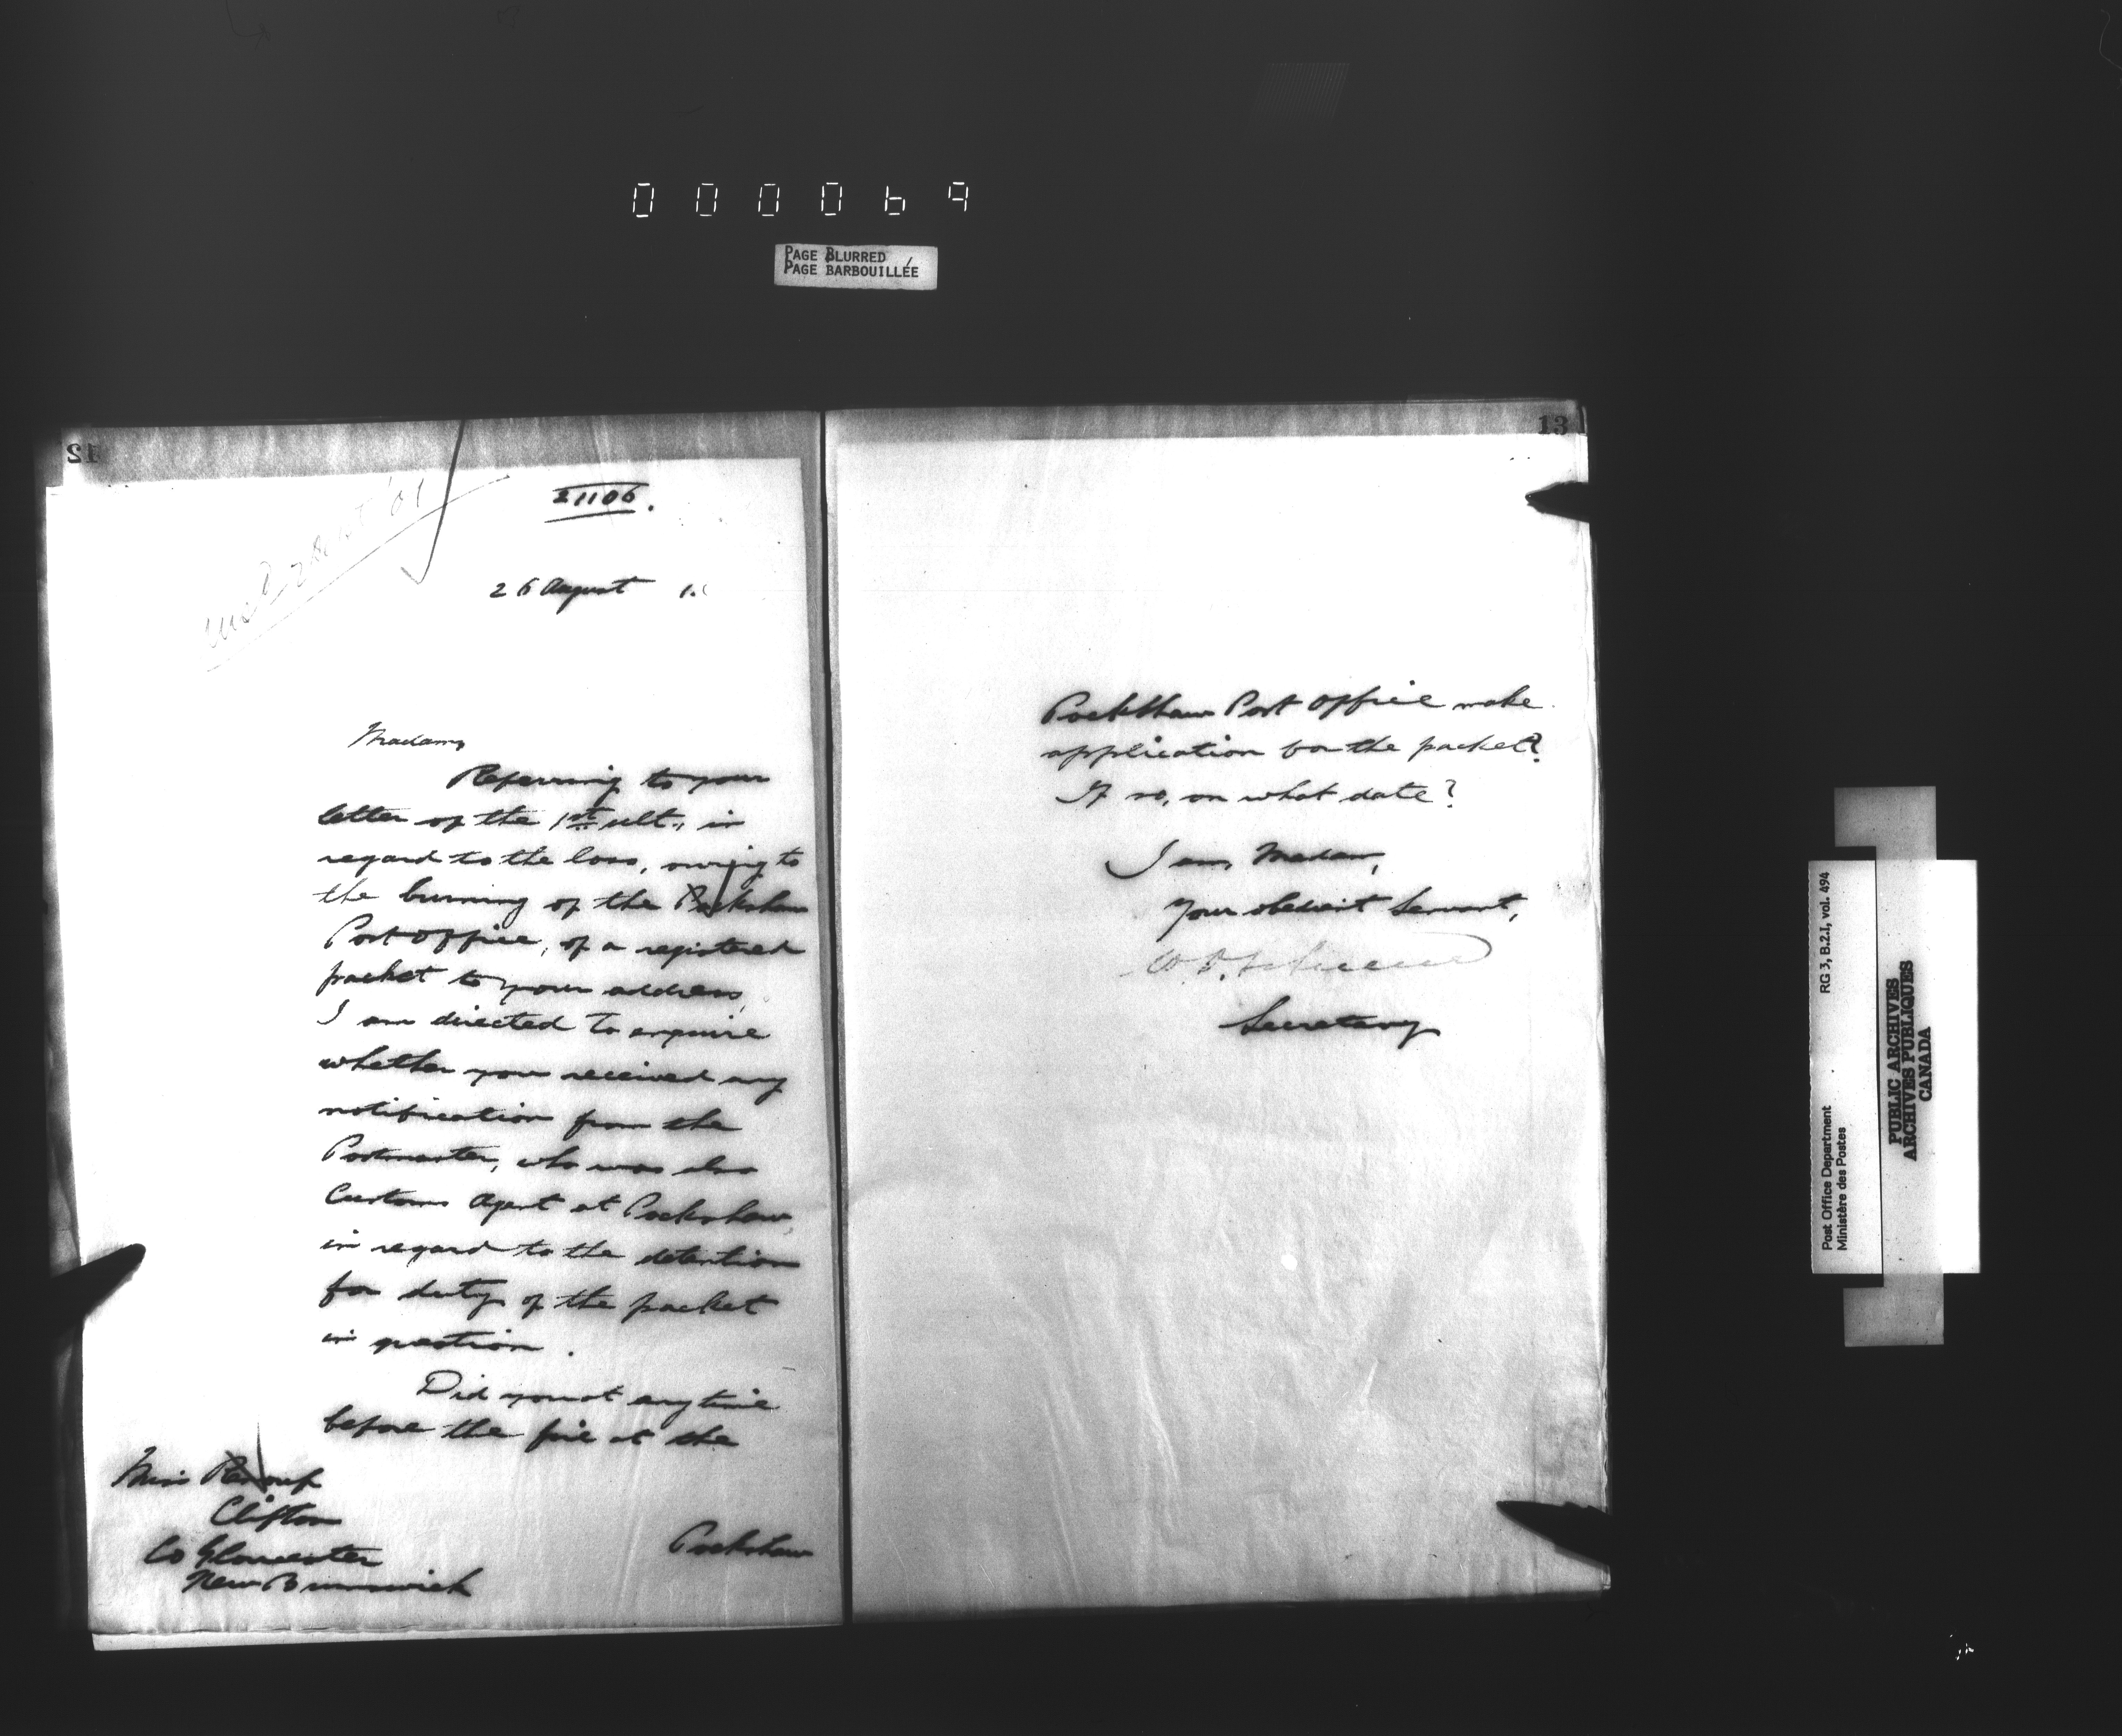 000069
PAGE BLURRED
PAGE BARBOUILLÉE
12
21106.
26 August 1.
Madam,
Referring to your
letter of the 1st ult., in
regard to the loss, owing to
the burning of the Pockshaw
Post Office, of a registered
packet to your address,
I am directed to enquire
whether you received any
notification from the
Postmaster, who was also
Customs Agent at Pockshaw,
in regard to the detention
for duty of the packet
in question.
Did you at any time
before the fire at the
Miss Renouf
Clifton
Co Gloucester
New Brunswick
Pockshaw
13
Pockshaw Post Office make
application for the packet?
If so, on what date?
I am, Madam,
Your obedient Servant,
Secretary
Post Office Department
Ministère des Postes
RG 3, B.2.I, vol. 494
PUBLIC ARCHIVES
ARCHIVES PUBLIQUES
CANADA